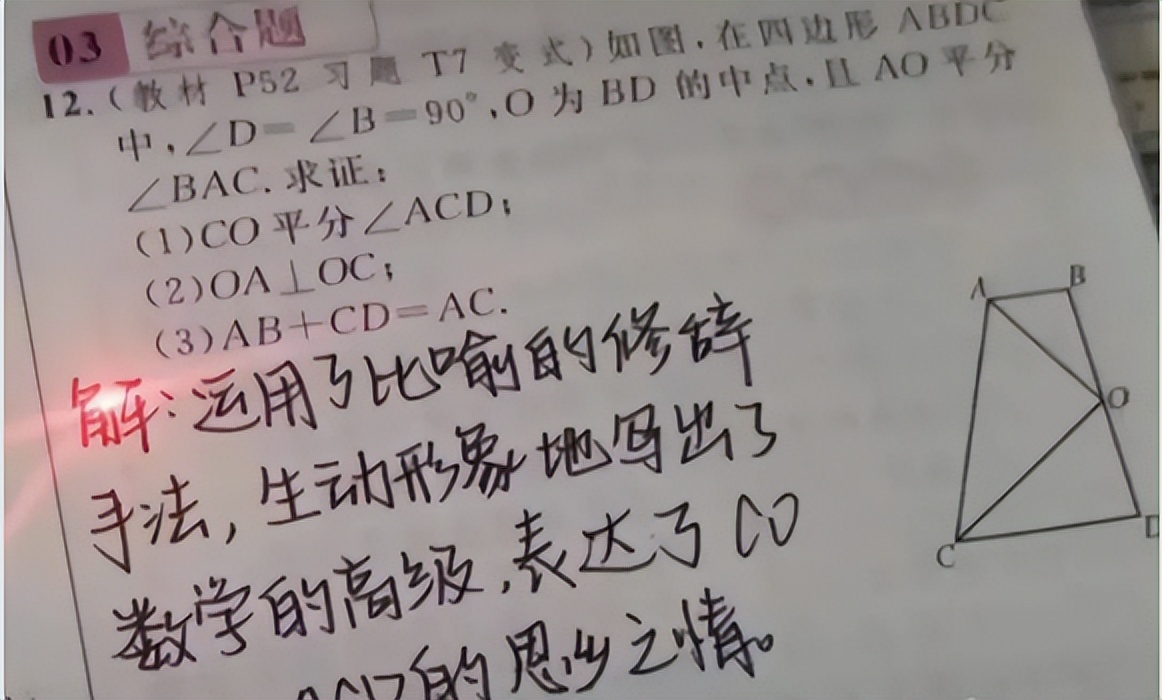 03 综合题
12.(教材 P52 习题 T7 变式)如图,在四边形 ABDC
中,∠D=∠B=90°,O 为 BD 的中点,且 AO 平分
∠BAC.求证:
(1)CO 平分∠ACD;
(2)OA⊥OC;
(3)AB+CD=AC.
解:运用了比喻的修辞
手法,生动形象地写出了
数学的高级,表达了CO
的思乡之情。
A
B
O
C
D